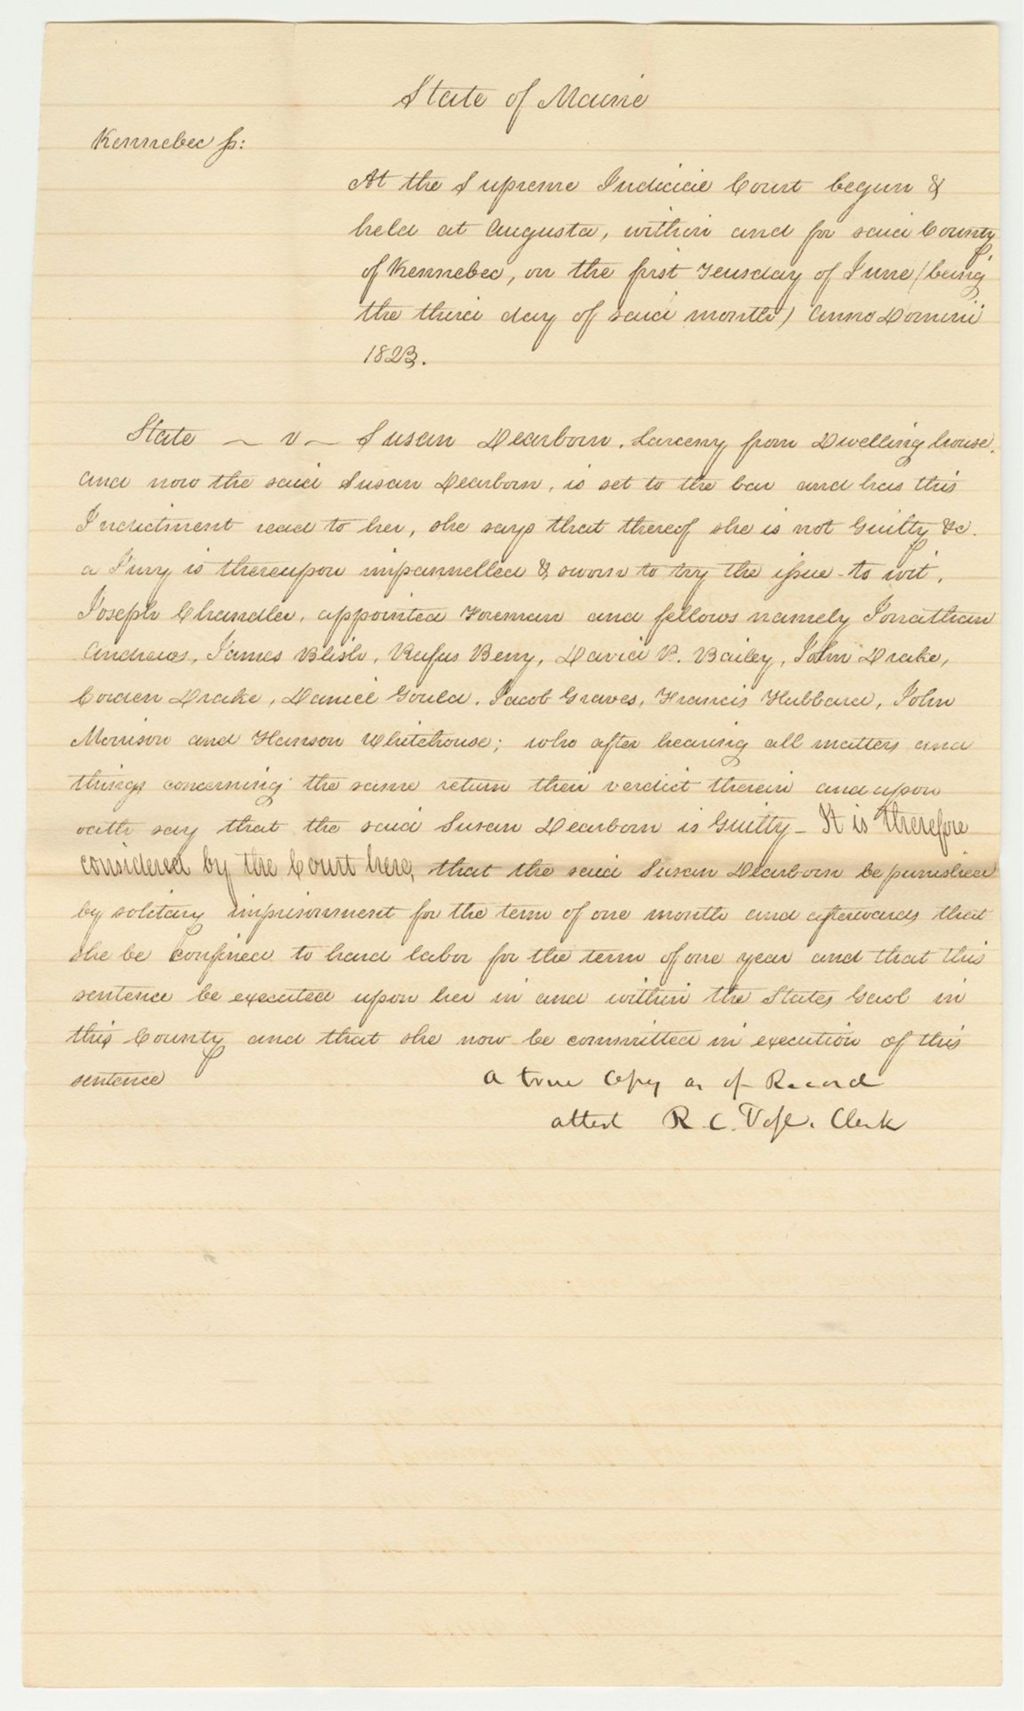 State of Maine
Kennebec ss:
At the Supreme Judicial Court begun &
held at Augusta, within and for said County
of Kennebec, on the first Teusday of June (being
the third day of said month) Anno Domini
1823.
State ~ v ~ Susan Dearborn. Larceny from Dwelling house.
And now the said Susan Dearborn, is set to the bar and has this
Indictment read to her, she says that thereof she is not Guilty &c.
a Jury is thereupon impannelled & sworn to try the issue to wit,
Joseph Chandler, appointed Foreman and fellows namely Jonathan
Andrews, James Blish, Rufus Berry, David P. Bailey, John Drake,
Drake, Daniel Gould, Jacob Graves, Francis Hubbard, John
Morrison and Hanson Whitehouse; who after hearing all matters and
things concerning the same return their verdict therein and upon
oath say that the said Susan Dearborn is Guilty - It is therefore
considered by the Court here, that the said Susan Dearborn be punished
by solitary imprisonment for the term of one month and afterwards that
she be confined to hard labor for the term of one year and that this
sentence be executed upon her in and within the States Gaol in
this County and that she now be committed in execution of this
sentence
A true Copy as of Record
attest R. C. Vose. Clerk